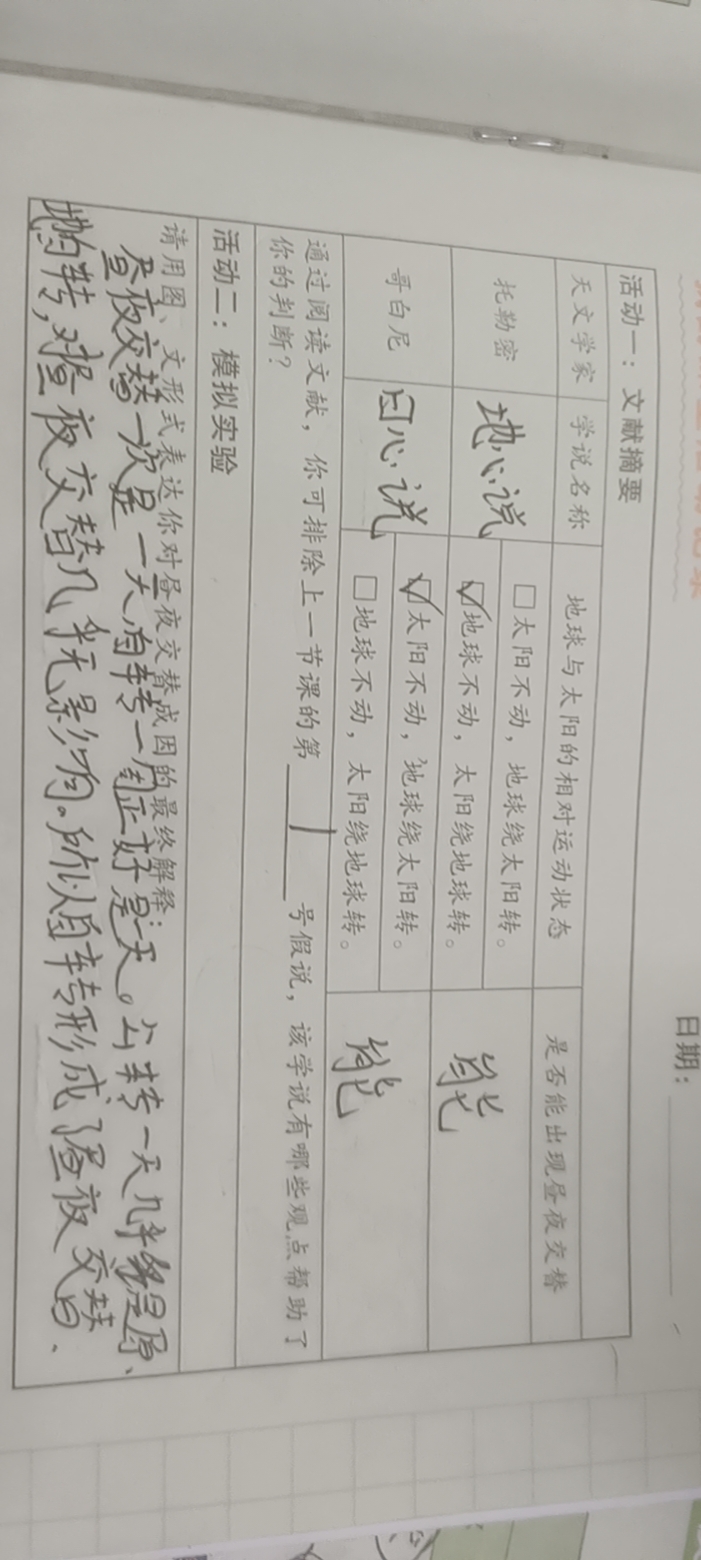 日期：
活动一：文献摘要
天文学家 学说名称 地球与太阳的相对运动状态 是否能出现昼夜交替
托勒密 地心说 □太阳不动，地球绕太阳转。 能
☑地球不动，太阳绕地球转。
哥白尼 日心说 ☑太阳不动，地球绕太阳转。 能
□地球不动，太阳绕地球转。
通过阅读文献，你可排除上一节课的第 1 号假说，该学说有哪些观点帮助了
你的判断？
活动二：模拟实验
请用图、文形式表达你对昼夜交替成因的最终解释：
昼夜交替一次是一天，自转一周正好是一天。公转一天几乎
转，对昼夜交替几乎无影响。所以自转形成了昼夜交替.